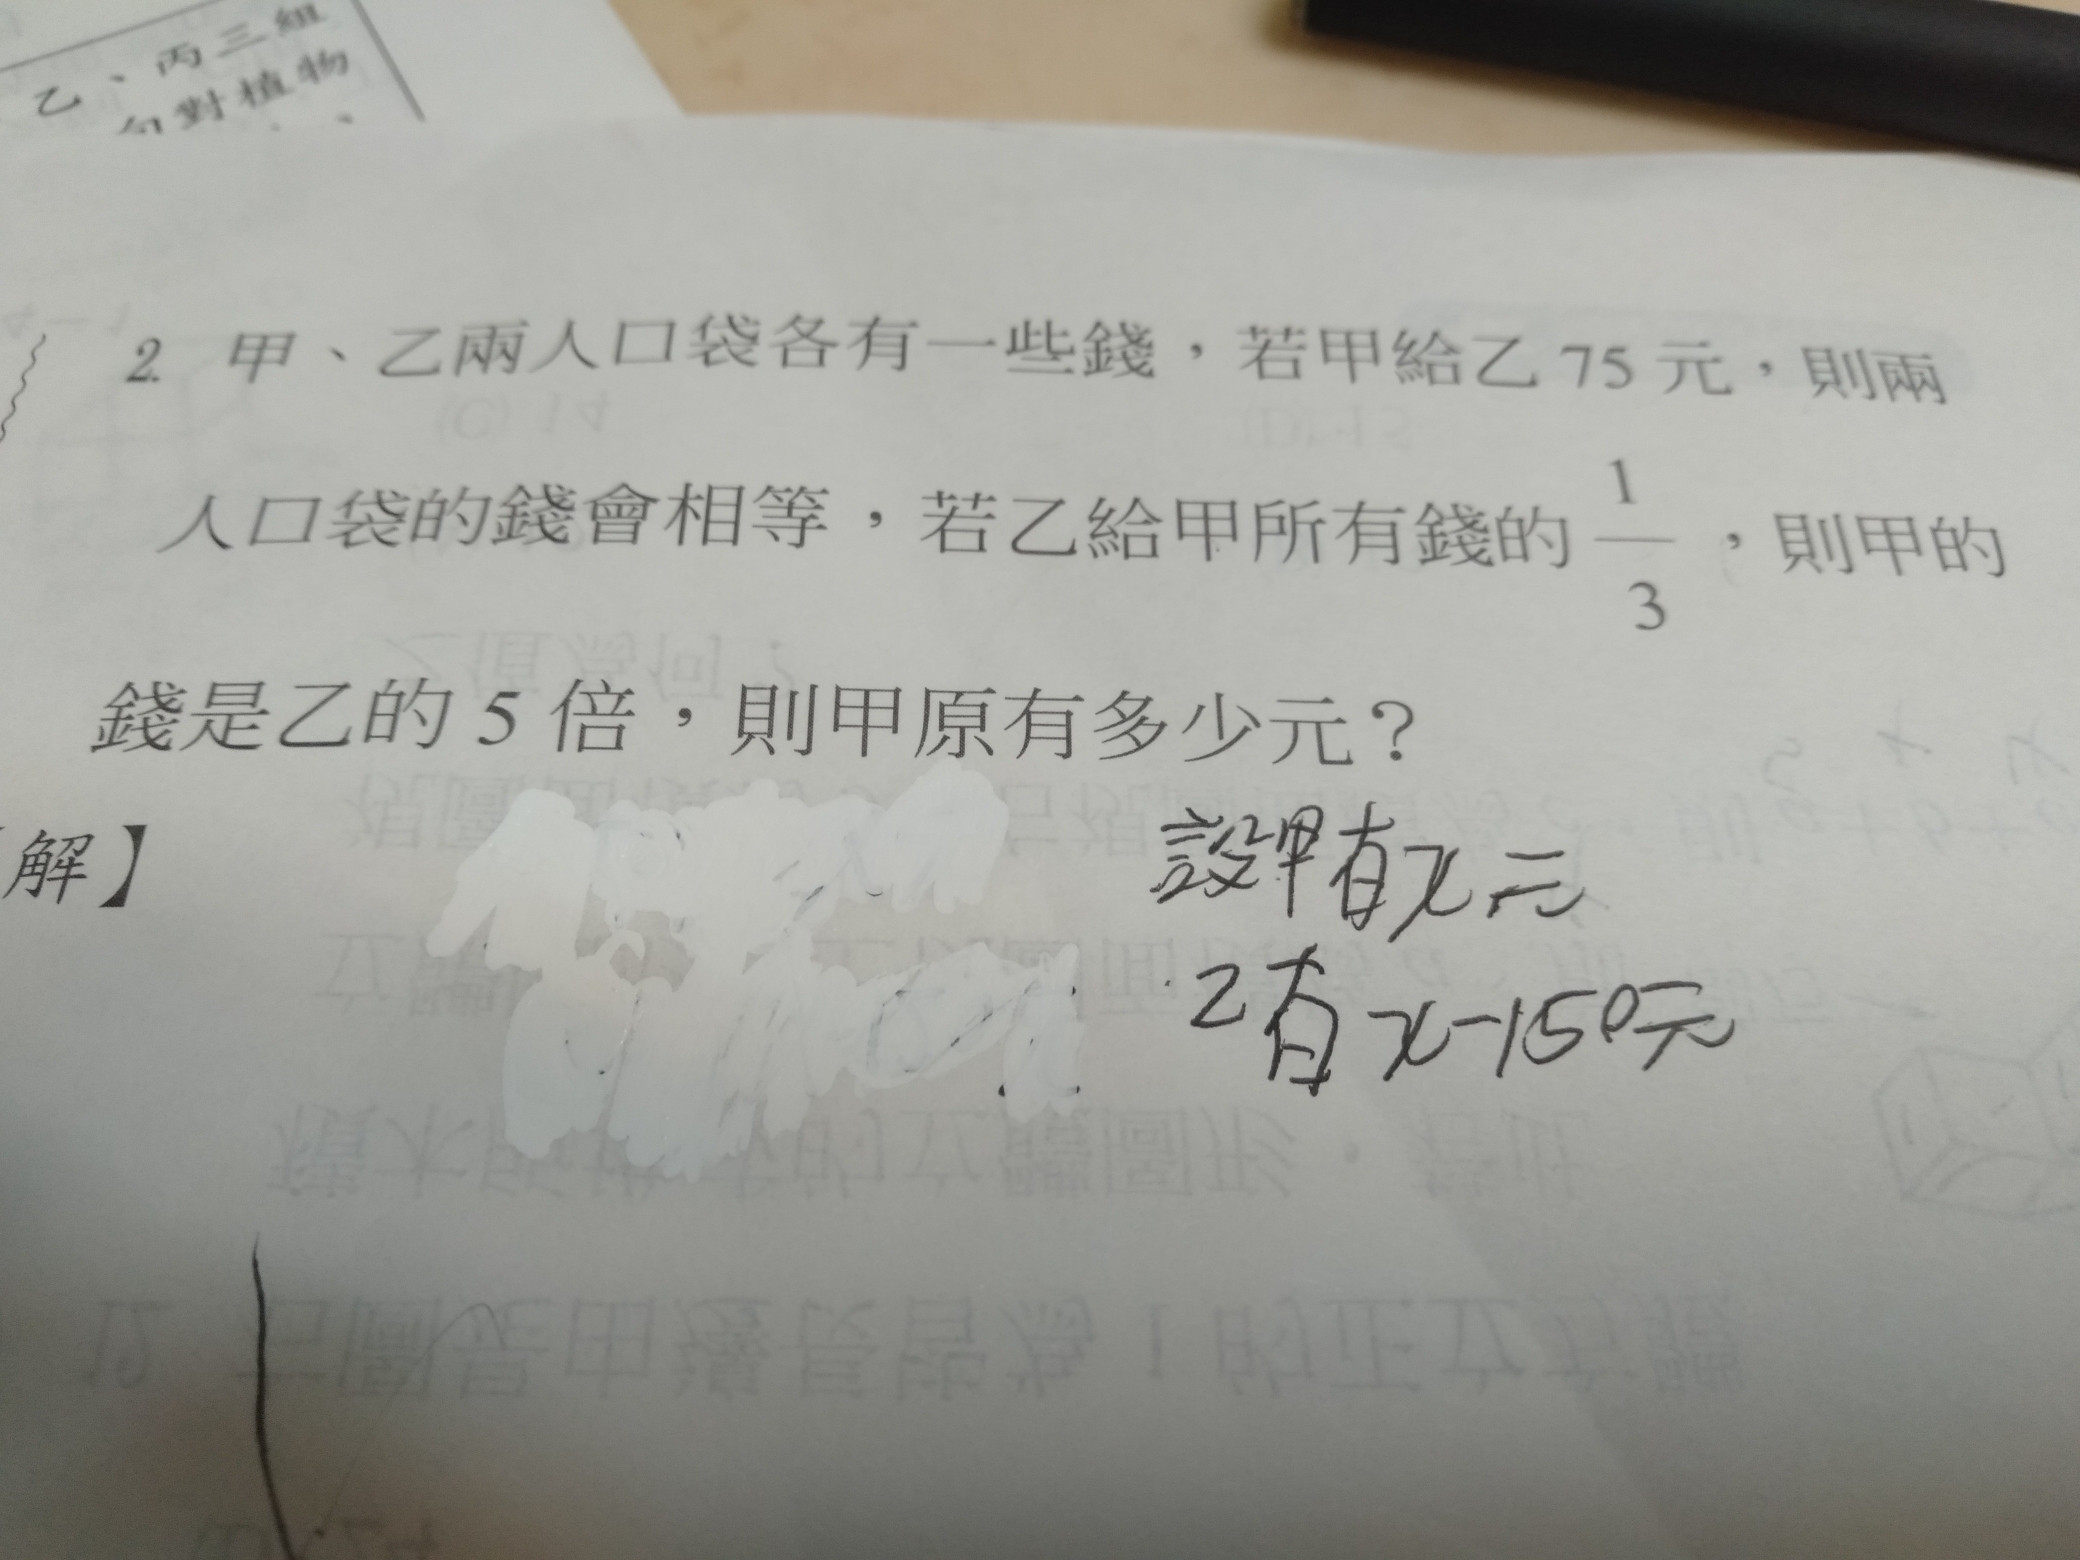 乙、丙三組
對植物
2. 甲、乙兩人口袋各有一些錢，若甲給乙 75 元，則兩
人口袋的錢會相等，若乙給甲所有錢的 1/3，則甲的
錢是乙的 5 倍，則甲原有多少元？
解】
設甲有x元
乙有x-150元